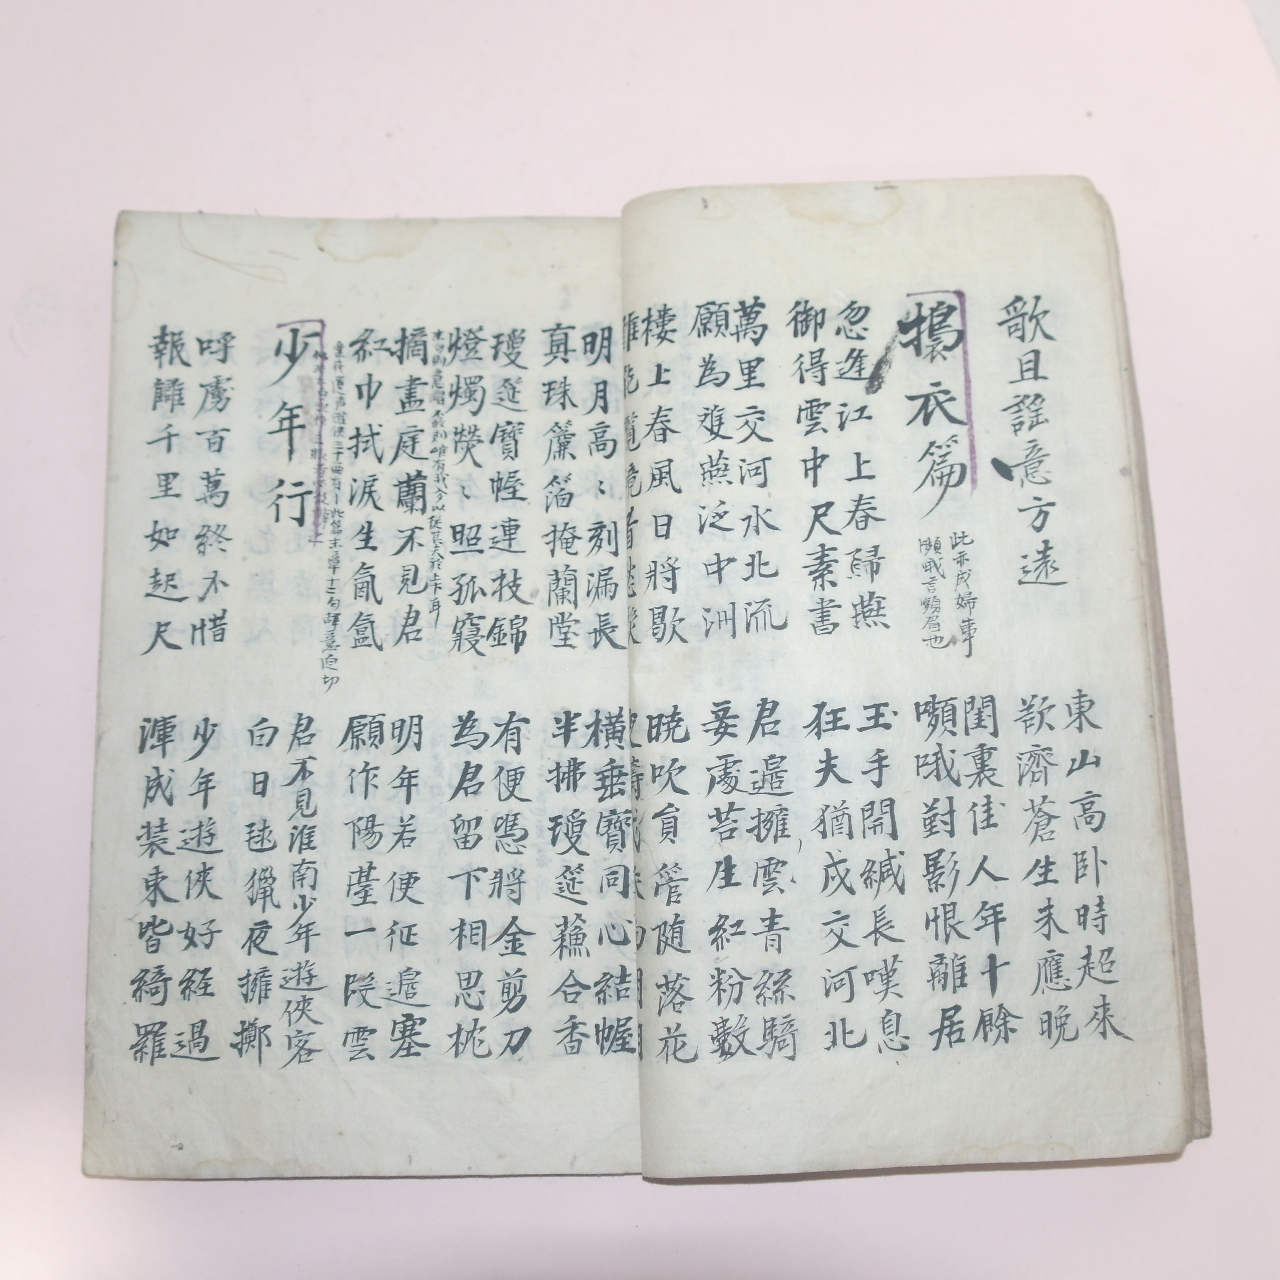 歌且謠意方遠
東山高卧時起來
欲濟蒼生未應晚
搗衣篇
此亦戍婦事
嚬蛾言嚬眉也
閨裏佳人年十餘
嚬蛾對影恨離居
忽逢江上春歸燕
御得雲中尺素書
玉手開緘長嘆息
狂夫猶戍交河北
萬里交河水北流
願為雙燕泛中洲
君邉擁雲青絲騎
妾處苔生紅粉數
樓上春風日將歇
曉吹員管随落花
明月高〻刻漏長
真珠簾箔掩蘭堂
橫垂寶幄同心結
半拂瓊筵蘓合香
瓊筵寶幄連枝錦
燈燭熒〻照孤寢
有便憑將金剪刀
為君留下相思枕
摘盡庭蘭不見君
紅巾拭淚生氤氳
明年若便征邉塞
願作陽臺一段雲
少年行
君不見淮南少年遊俠客
白日毬獵夜擁擲
呼盧百萬終不惜
報讎千里如咫尺
少年遊俠好経過
渾成装束皆綺羅